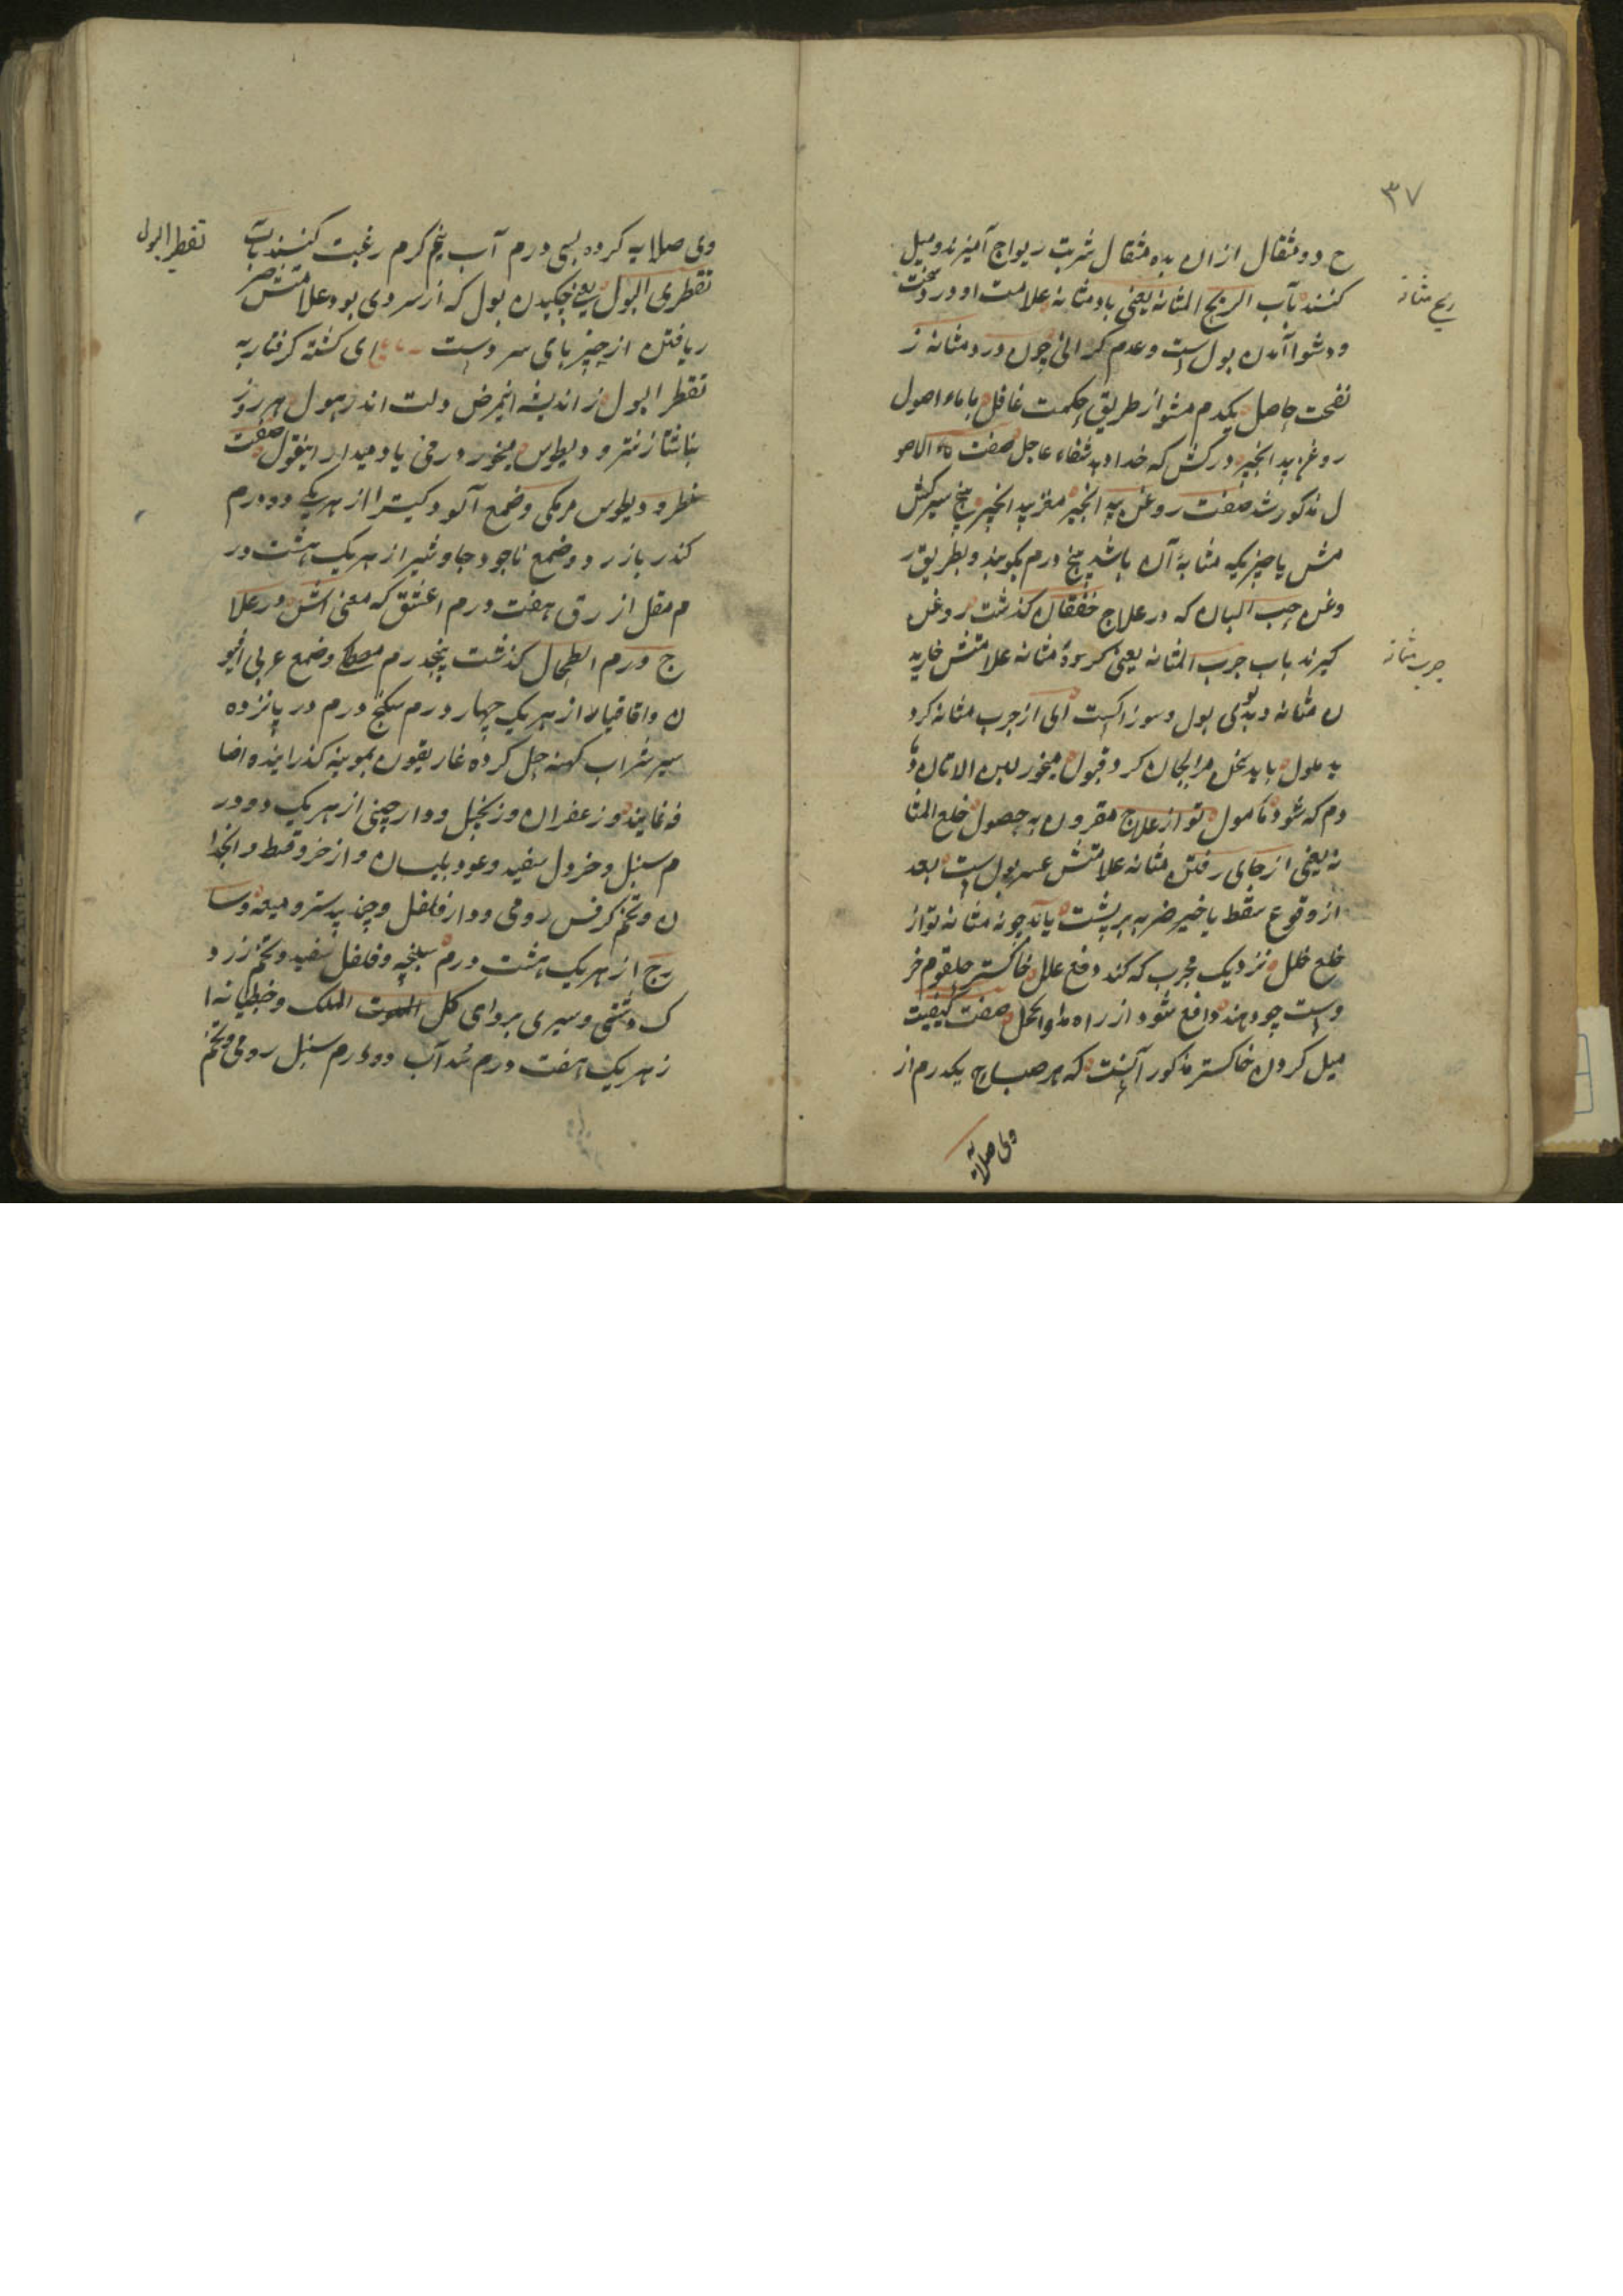 ۳۷
ح دو مثقال ازان بده مثقال شربت ریواج آمیزند و میل
ریح مثانه
کنند باب الریح المثانه یعنی باد مثانه علامت او درد سخت
و دشوا آمدن بول است و عدم کرانی چون درد مثانه ز
نفخت حاصل یکدم مشو از طریق حکمت غافل باماء اصول
روغن بید انجیر درکش که خدا دهد شفاء عاجل صفت ماء الاصو
ل مذکور شد صفت روغن بید انجیر مغز بید انجیر پنج سیر کشش
مش یا چیزیکه مثابهٔ آن باشد پنج درم بکوبند و بطریق ر
وغن حب البان که در علاج خفقان کذشت روغن
کیرند باب جرب المثانه یعنی کر مثانه علامتش خارید
جرب مثانه
ن مثانه و بدبوی بول و سوزاکست ای از جرب مثانه کرد
ید ملول باید عمل مرا بجان کرد قبول میخور لبن الاتان
دم که شود مأمول تو از علاج مقرون به حصول خلع المثا
نه یعنی از جای رفتن مثانه علامتش عسر بول است بعد
از وقوع سقط یا ضربه بر پشت یابد چو نه مثانه تو از
خلع خلل نزدیک مجرب که کند دفع علل خاکستر حلقوم خر
وست چو دهند دافع شود از راه مداوا خلل صفت کیفیت
میل کردن خاکستر مذکور آنست که هر صباح یکدرم از
وی صلایه
وی صلایه کرده بسی درم آب نیم کرم رغبت کنند باب
تقطیر البول
تقطری البول یعنی چکیدن بول که از سردی بود علامتش ضر
ر یافتن از چیزهای سردست رباعی ای کشته کرفتار به
تقطر البول ز اندیشه این مرض دلت اندر هول هر روز
بناشتا ز نثرودیطوس میخور درمی یاد میدار این قول صفت
نطرودیطوس مرمکی و صمع آلو و کتیرا از هر یکی دو درم
کندر بازرد و صمع ناجود جاوشیر از هر یک هشت در
م مقل ازرق هفت درم اعشق که معنی اش در علا
ج ورم الطحال کذشت پنجدرم مصطکی و صمع عربی افیو
ن و اقاقیا از هر یک چهار درم سکنج درم در پانزده
سیر شراب کهنه حل کرده غاریقون بمویینه کذرانیده اضا
فه نمایند و زعفران و زنجبیل و دارچینی از هر یک دو در
م سنبل و خردل سفید و عود بلسان و ازخر و قسط و انجدا
ن و تخم کرفس رومی و دارفلفل و جند بیدستر و میعه و سا
رج از هر یک هشت درم سلیخه و فلفل سفید و تخم زرد
ک دشتی و سیری بردای کل الموت الملک و جنطیانه ا
ز هر یک هفت درم سداب دو درم سنبل رومی و تخم